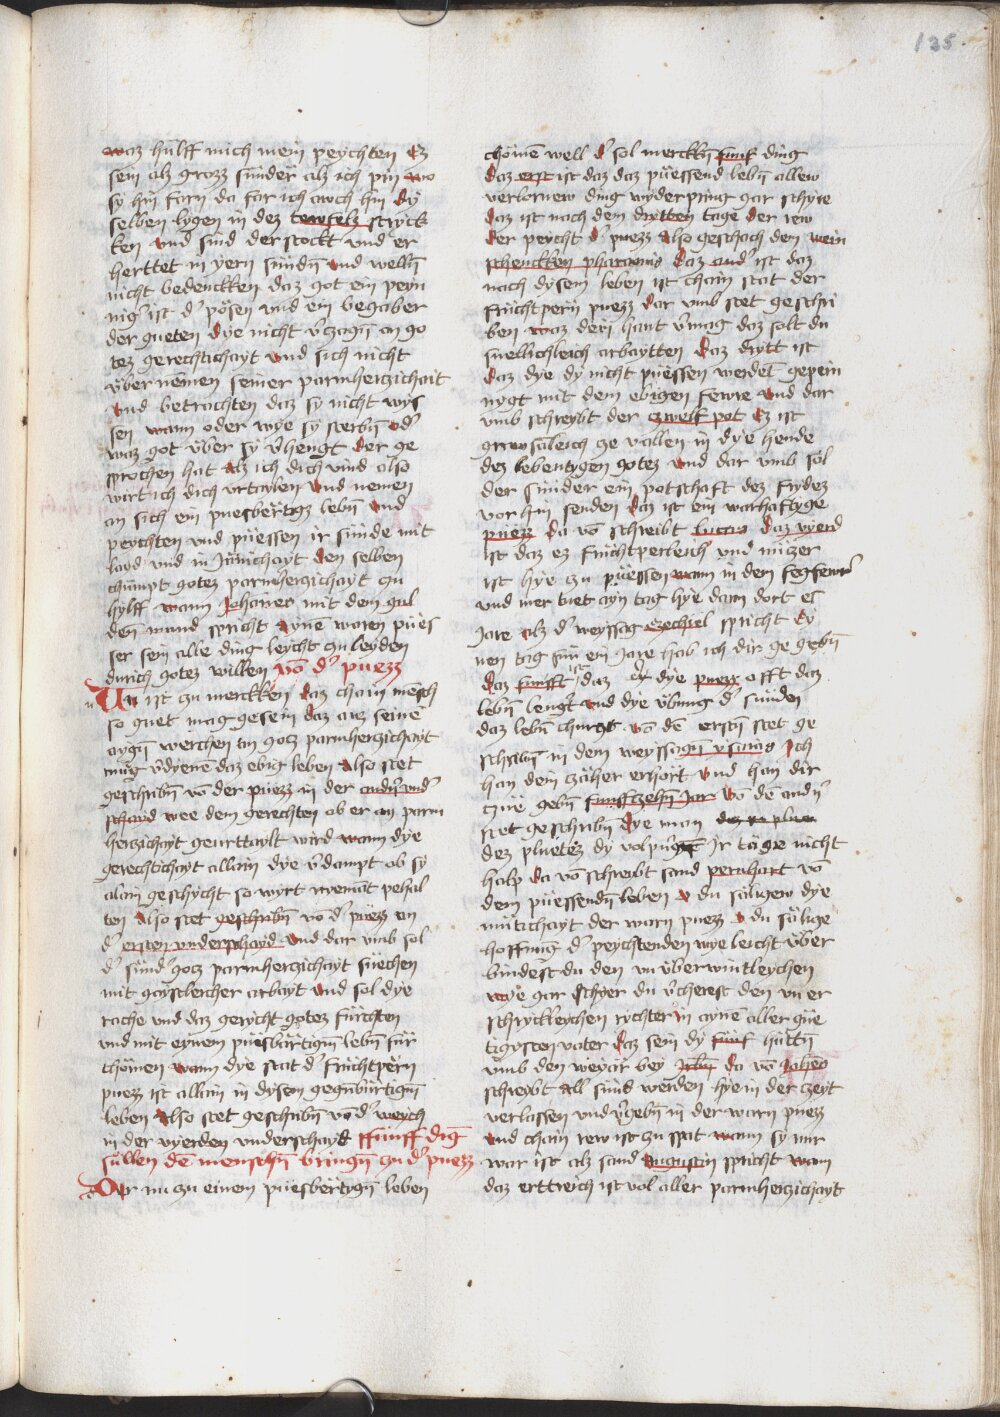 135
waz hülff mich mein peychten Ez
sein alz grozz sünder alz ich pin wo
sy hin farn da far ich awch hin Dy
selben lygen in dez tewfelz strÿck
ken vnd sind derstockt vnd er
herttet in yern sündn̄ vnd welln̄
nicht bedenckken daz got ein peyn
nig' ist d' pösen vnd ein begaber
der gueten Dye nicht v'zagn̄ an go
tez gerechtichayt vnd sich nicht
über nemen seiner parmherczichait
vnd betrachten daz sy nicht wÿs
sen wann oder wye sy sterbn̄ od'
waz got über sy v'hengt Der ge
sprochen hat Alz ich dich vind also
wirt ich dich vrtaylen Vnd nemen
an sich ein puesbërtigz lebn̄ vnd
peychten vnd püessen ir sünde mit
layd vnd in Jnnichayt Den selben
chümpt gotez parmherczichayt zu
hylff wann Johannes mit dem gul
den mund spricht Aynē waren pües
ser sein alle ding leycht zu leyden
durich gotez willen vō d' puezz
Nu ist zu merckken daz chain mēsch
so guet mag gesein daz auz seinē
aygn̄ werchen an gotz parmherczichayt
müg v'dyenē daz ebig leben Also stet
geschribn̄ vō der puezz in der andn̄ vnd'
schayd wee dem gerechten ob er an parm
herczichayt geurttaylt wird wann dye
gerechtichayt allain dye v'dampt ob sy
alain geschÿcht so wyrt nyemāt pehal
ten Also stet geschribn̄ vō d' puezz an
d' ersten vnderschayd Vnd dar vmb sol
d' sünd' gotz parmherczichayt süechen
mit gaystleicher arbayt vnd sol dye
rache vnd daz gerycht gotez fürchten
vnd mit eynem puesbärtigm̄ lebn̄ für
chömen wann dye stat d' fruchtpērn
puezz ist allain in dysem gegnbürtign̄
leben Also stet geschribn̄ vō d' weych
in der vyerden vnderschayd ffünff dīg
süllen dē menschn̄ bringn̄ zu d' puezz
Der nu zu einem puesbërtygn̄ leben
chömē well d' sol merckkn̄ fünf ding
daz erst ist daz daz püessend lebn̄ allew
verlornew ding wyderpring gar schyre
Daz ist nach dem drytten tage der rew
der peycht d' puezz Also geschach den wein
schenckken pharaonis Daz and' ist daz
nach dysem leben ist chain stat der
früchtpern puezz dar vmb stet geschri
ben waz dein hant v'mag daz solt du
snellichleich arbaytten Daz drytt ist
daz dye dy nicht püessen werdēt gepein
nygt mit dem ebigen fewre vnd dar
vmb schreybt der czwelf pot Ez ist
grewsaleich ze vallen in dye hende
dez lebentygen gotez vnd dar vmb sol
der sünder ein potschaft dez frydez
vor hin senden daz ist ein warhaftyge
puezz Da vō schreibt Lucas Daz vyerd
ist daz ez fruchtperleich' vnd nüczer
ist hye zu püessen wann in dem fegfewr'
vnd mer tuet ayn tag hye dann dort es
Jare Alz d' weyssag ezechiel spricht Ey
nen tag für ein Jare hab ich dir ge gebn̄
Daz fünfft ist daz dye puezz offt daz
lebn̄ lengt vnd dye v̈bung d' sünden
daz lebn̄ churczt vō dē erstn̄ stet ge
schribn̄ in dem weyssagn̄ ysaias Ich
han dein zäher erhört vnd han dir
czue gebn̄ fünffczehn̄ Jar Vō dē andn̄
stet geschribn̄ Dye man dez plue
dez pluetez dy volpringē Jr täge nicht
halp Da vō schreibt sand pernhart vō
dem püessendn̄ leben O du säligew dye
mütichayt der warn puezz O du sälige
hoffnung d' peychtenden wye leicht über
bindest du den vnüberwintleychen
wye gar schyer du v'cherest den vn er
schrykkleychen rychter in aynē aller güe
tigysten vater Daz sein dy fünf hüttn̄
vmb den weyär bey Jrl̄m Da vō Johēs
schreybt All sünd werden hye in der czeyt
verlassen vnd v'gebn̄ in der warn puezz
vnd chain rew ist zu spat wann sy nur
war ist alz sand Augustin spricht wann
daz erttreich ist vol aller parmherczichayt